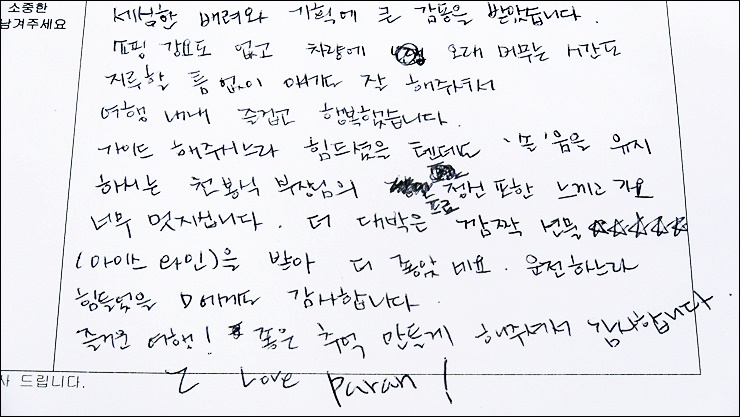 소중한
남겨주세요
세심한 배려와 기획에 큰 감동을 받았습니다.
쇼핑 강요도 없고 차량에 오래 머무는 시간도
지루할 틈 없이 얘기도 잘 해주셔서
여행 내내 즐겁고 행복했습니다.
가이드 해주시느라 힘드셨을 텐데도 '솔'음을 유지
하시는 천봉식 부장님의 정신 또한 느끼고 가요
프로
너무 멋지십니다. 더 대박은 깜짝 선물 ☆☆☆☆☆
(아이스 와인)을 받아 더 좋았네요. 운전하느라
힘들었을 D에게도 감사합니다.
즐거운 여행! 좋은 추억 만들게 해주셔서 감사합니다.
사 드립니다.
I Love paran!